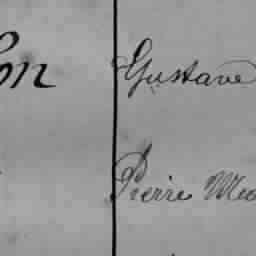 on Gustave
Pierre